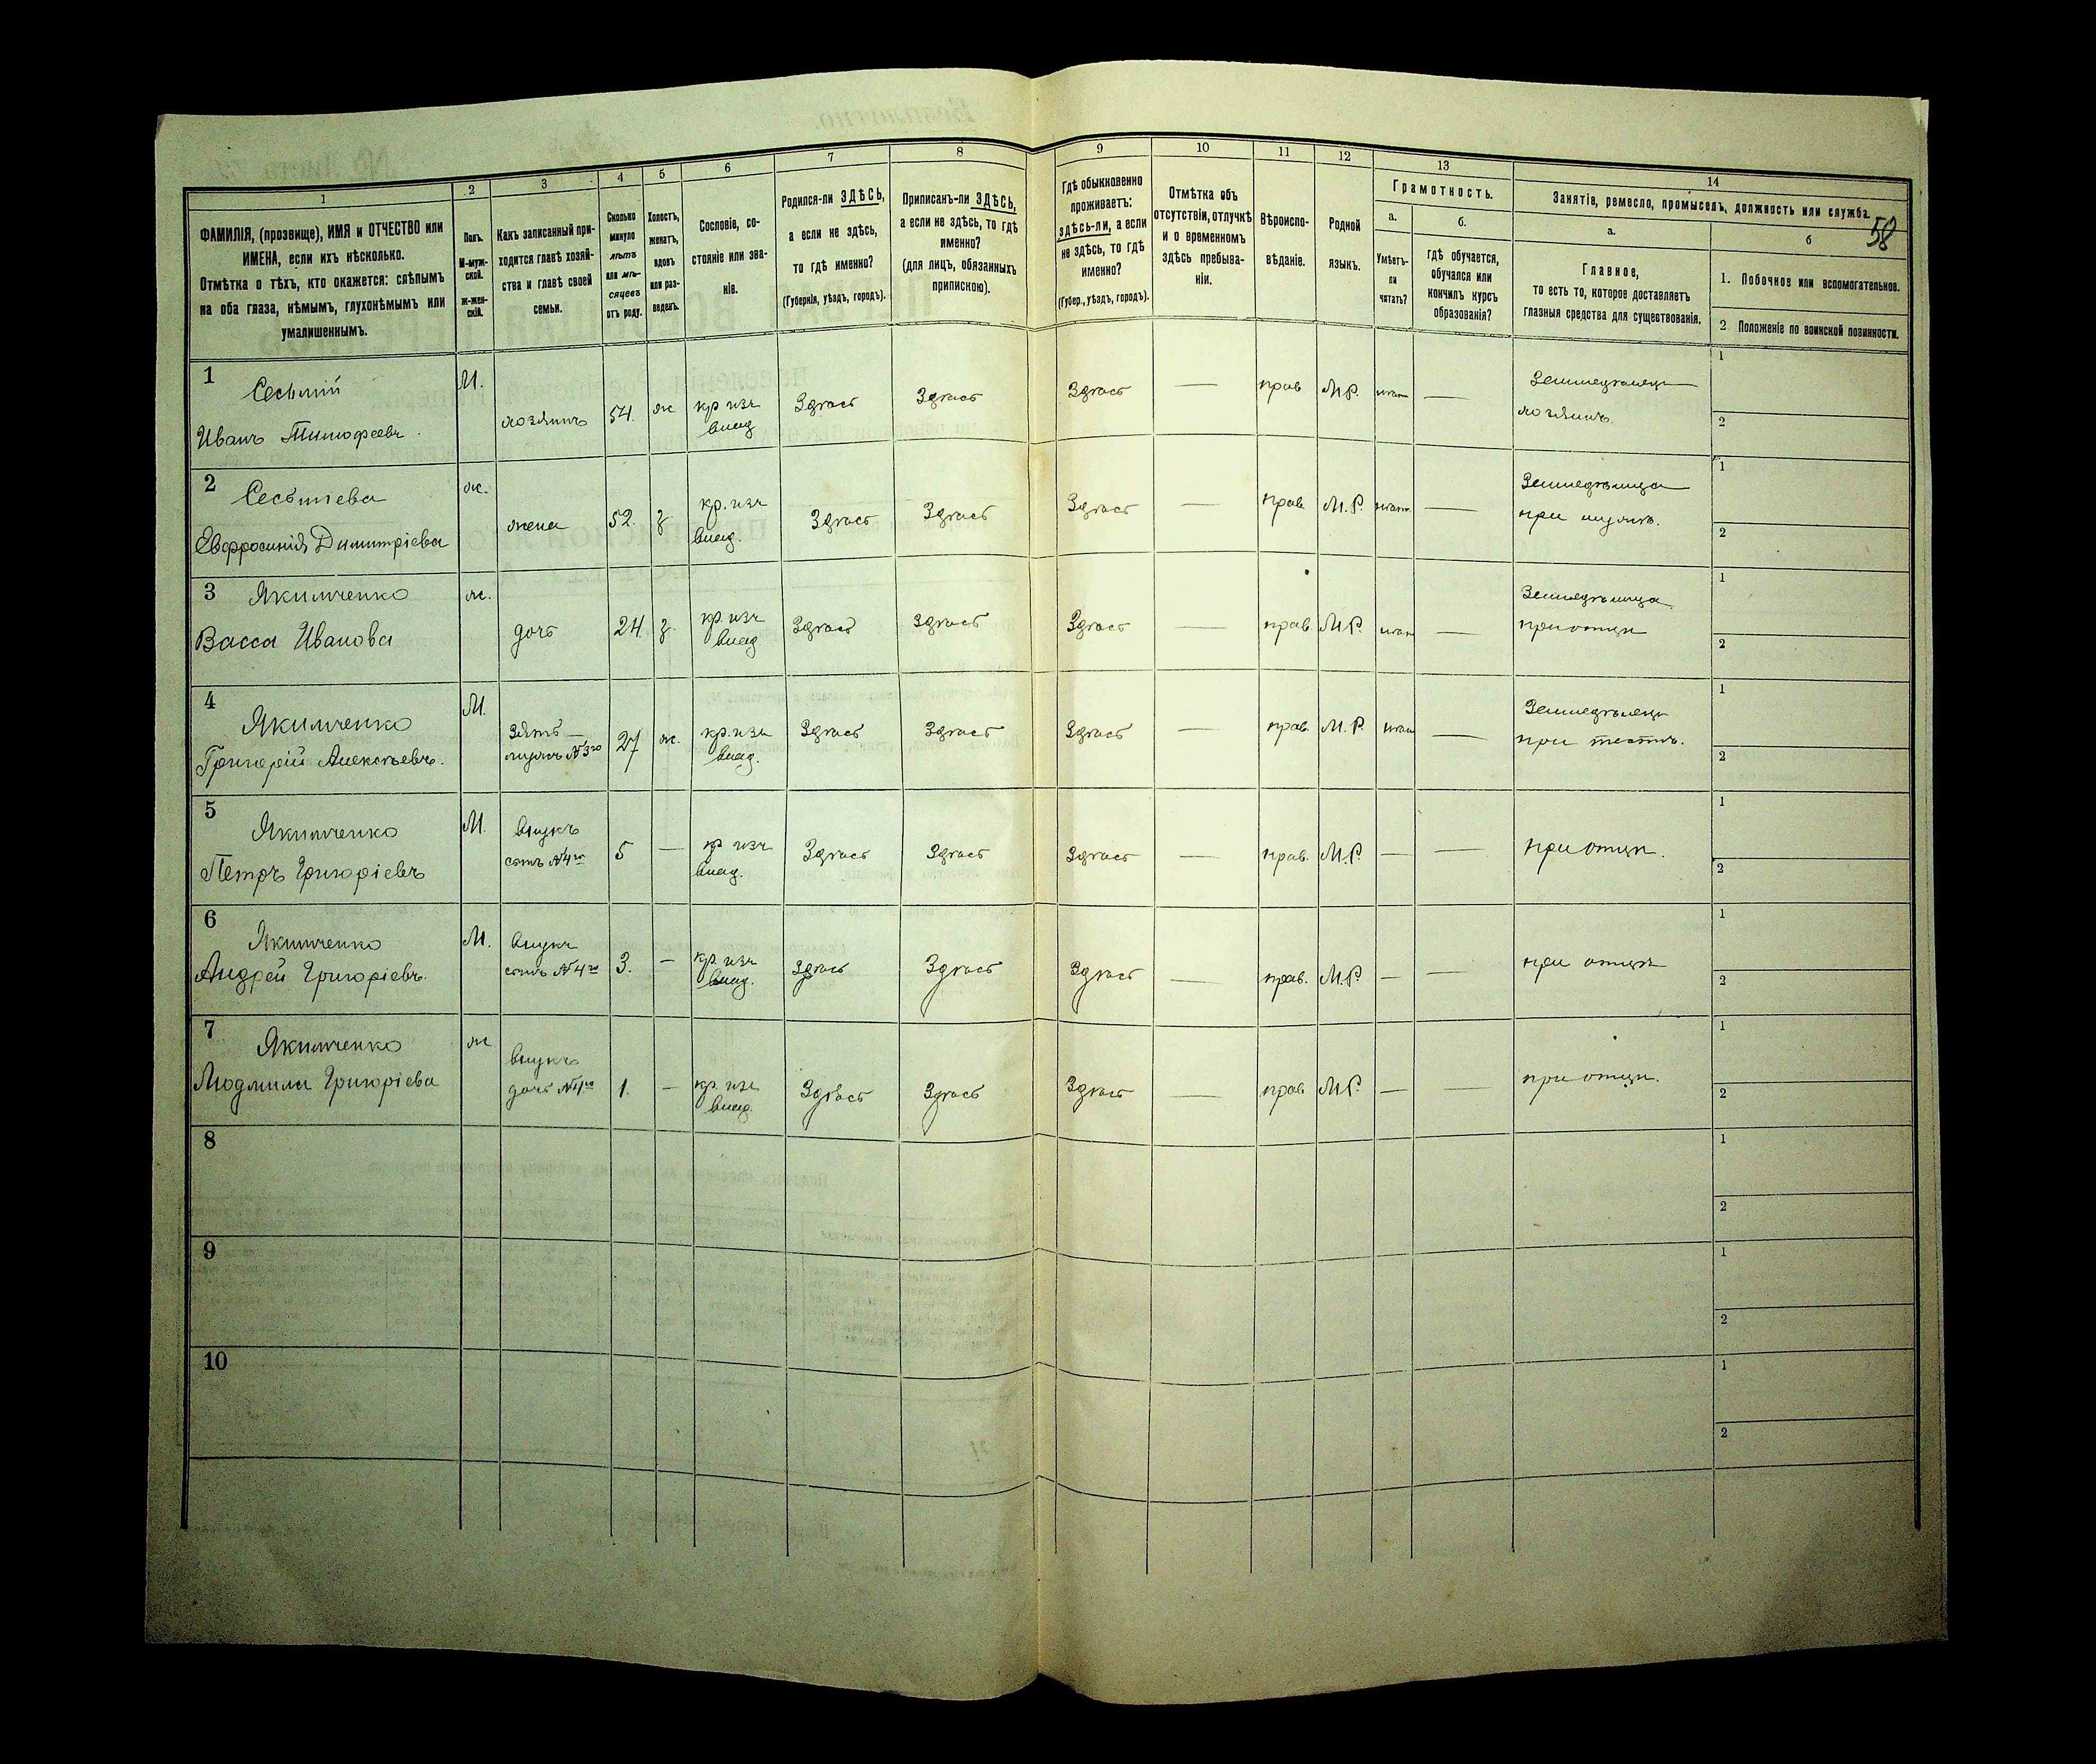 58
1 2 3 4 5 6 7 8 9 10 11 12 13 14
ФАМИЛІЯ, (прозвище), ИМЯ и ОТЧЕСТВО или
ИМЕНА, если ихъ нѣсколько.
Отмѣтка о тѣхъ, кто окажется: слѣпымъ
на оба глаза, нѣмымъ, глухонѣмымъ или
умалишеннымъ.
Полъ.
М-муж-
ской.
ж-жен-
скій.
Какъ записанный при-
ходится главѣ хозяй-
ства и главѣ своей
семьи.
Сколько
минуло
лѣтъ
или мѣ-
сяцевъ
отъ роду.
Холостъ,
женатъ,
вдовъ
или раз-
веденъ.
Сословіе, со-
стояніе или зва-
ніе.
Родился-ли ЗДѢСЬ,
а если не здѣсь,
то гдѣ именно?
(Губернія, уѣздъ, городъ).
Приписанъ-ли ЗДѢСЬ,
а если не здѣсь, то гдѣ
именно?
(для лицъ, обязанныхъ
припискою).
Гдѣ обыкновенно
проживаетъ:
здѣсь-ли, а если
не здѣсь, то гдѣ
именно?
(Губер., уѣздъ, городъ).
Отмѣтка объ
отсутствіи, отлучкѣ
и о временномъ
здѣсь пребыва-
ніи.
Вѣроиспо-
вѣданіе.
Родной
языкъ.
Грамотность.
а.
Умѣетъ-
ли
читать?
б.
Гдѣ обучается,
обучался или
кончилъ курсъ
образованія?
Занятіе, ремесло, промыселъ, должность или служба.
а.
Главное,
то есть то, которое доставляетъ
главныя средства для существованія.
б
1. Побочное или вспомогательное.
2 Положеніе по воинской повинности.
1 М. 1
Иванъ Тимофеевъ. хозяинъ 54. ж кр. изъ влад Здѣсь Здѣсь Здѣсь — прав М.Р. — Земледѣлецъ
хозяинъ. 2
2 ж. 1
Евфросинія Димитріева жена 52. з. кр. изъ влад. Здѣсь Здѣсь Здѣсь — прав. М.Р. — Земледѣлица
при мужѣ. 2
3 Якимченко ж. 1
Васса Иванова дочь 24 з. кр. изъ влад. Здѣсь Здѣсь Здѣсь — прав. М.Р. — Земледѣлица
при отцѣ 2
4 Якимченко М. 1
Григорій Алексѣевъ. Зять — мужъ №3го 27 ж. кр. изъ влад. Здѣсь Здѣсь Здѣсь — прав. М.Р. — Земледѣлецъ
при тестѣ. 2
5 Якимченко М. внукъ 1
Петръ Григоріевъ сынъ №4го 5 — кр изъ влад. Здѣсь Здѣсь Здѣсь — прав. М.Р. — — при отцѣ. 2
6 Якимченко М. внукъ 1
Андрей Григоріевъ. сынъ №4го 3. — кр. изъ влад. Здѣсь Здѣсь Здѣсь — прав. М.Р. — — при отцѣ 2
7 Якимченко ж внукъ 1
Людмила Григоріева дочь №4го 1. — кр. изъ влад. Здѣсь Здѣсь Здѣсь — прав М.Р. — — при отцѣ. 2
8 1
2
9 1
2
10 1
2